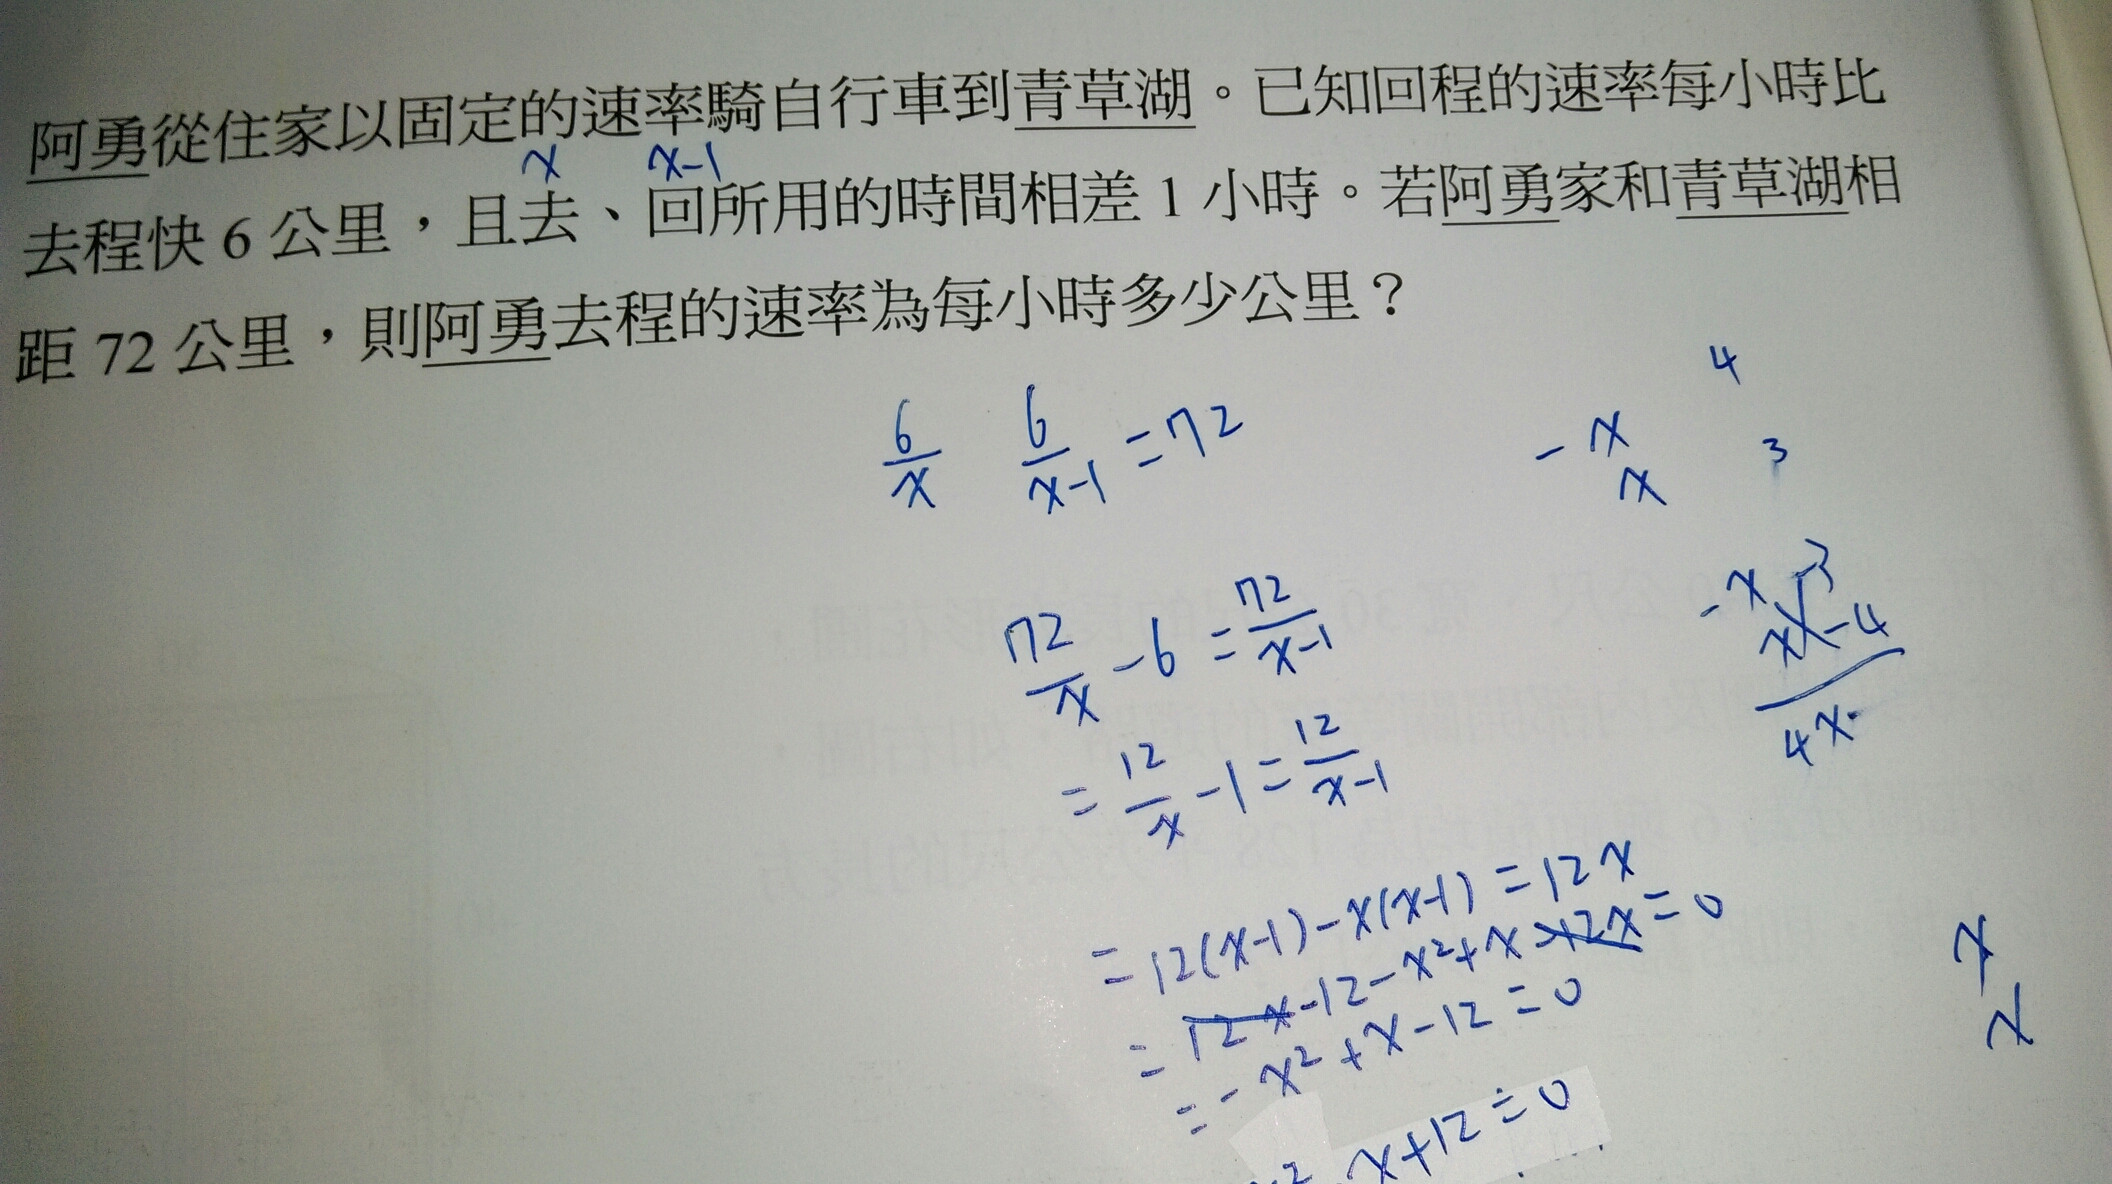 阿勇從住家以固定的速率騎自行車到青草湖。已知回程的速率每小時比
x x-1
去程快 6 公里，且去、回所用的時間相差 1 小時。若阿勇家和青草湖相
距 72 公里，則阿勇去程的速率為每小時多少公里？
6/x 6/x-1 =72
4
-x
x 3
72/x -6 = 72/x-1
-x -3
x -4
4x
= 12/x -1 = 12/x-1
= 12(x-1)-x(x-1) = 12x
= 12x-12-x²+x-12x=0
= -x²+x-12=0
x+12=0
x
x